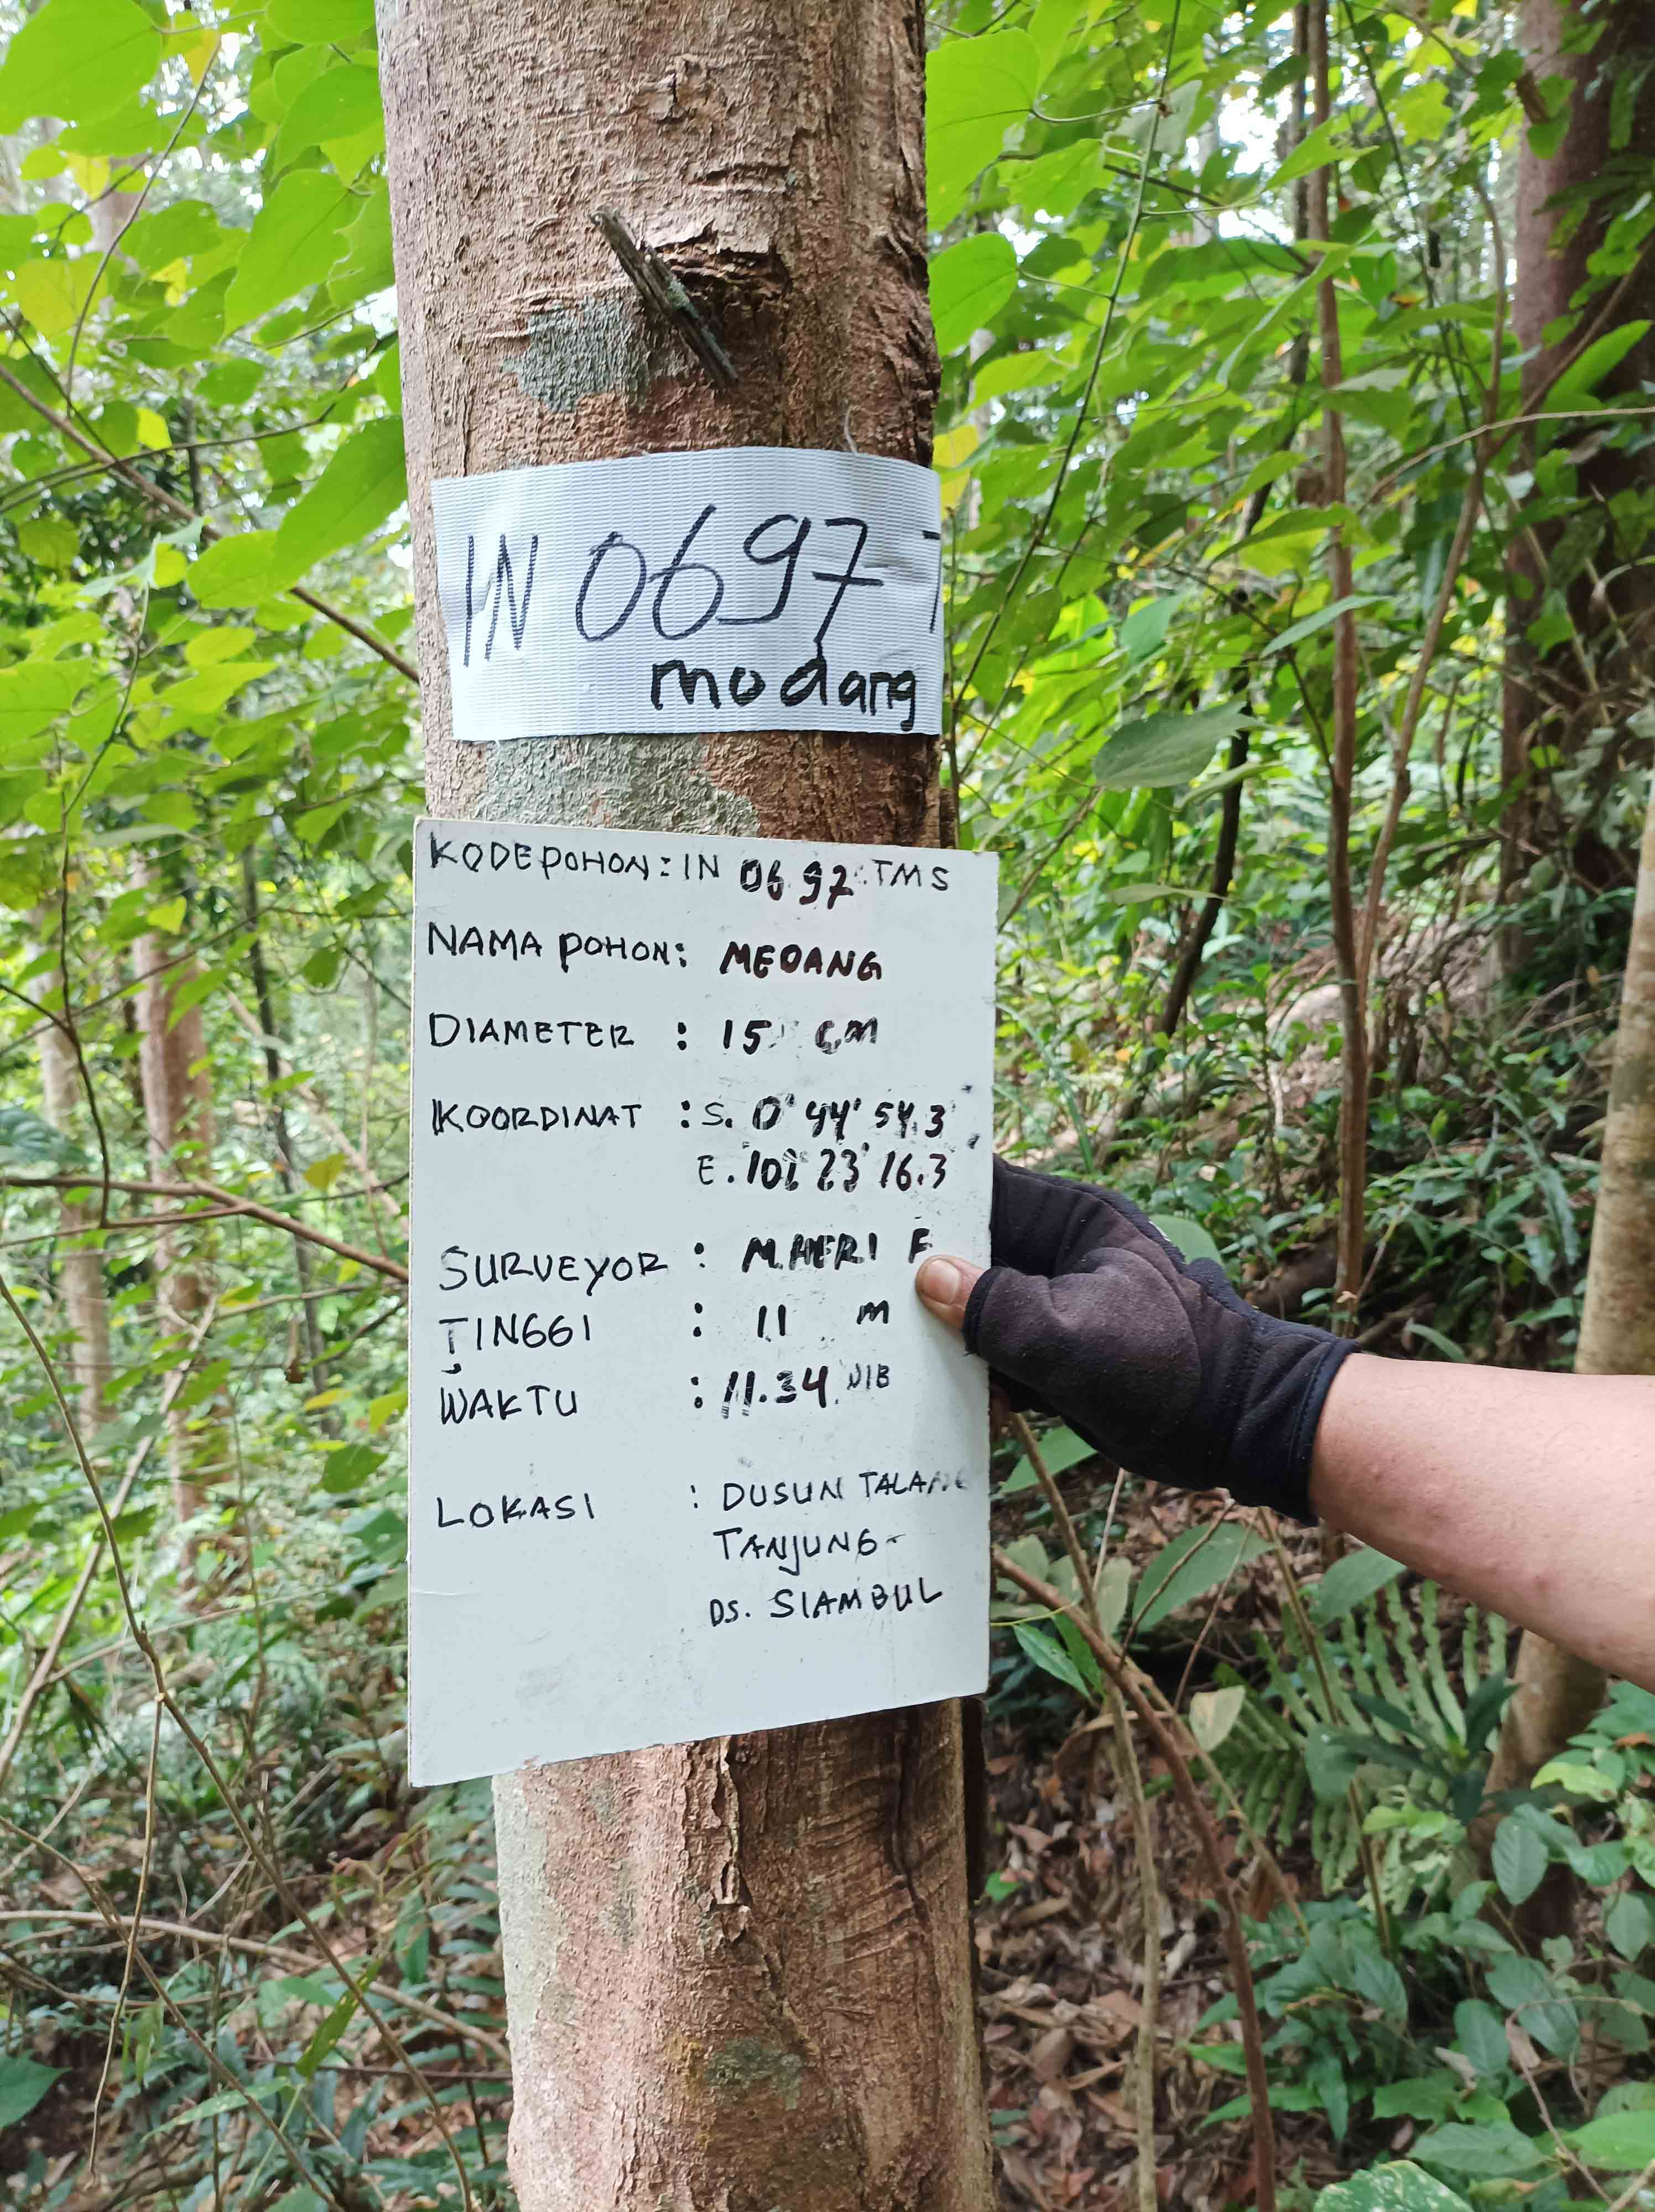 IN 0697 T
modang
KODE POHON : IN 0697 TMS
NAMA POHON : MEDANG
DIAMETER : 15 CM
KOORDINAT : S. 0° 44' 54.3
E. 101° 23' 16.3
SURVEYOR : M.HERI F
TINGGI : 11 m
WAKTU : 11.34 WIB
LOKASI : DUSUN TALANG
TANJUNG
DS. SIAMBUL